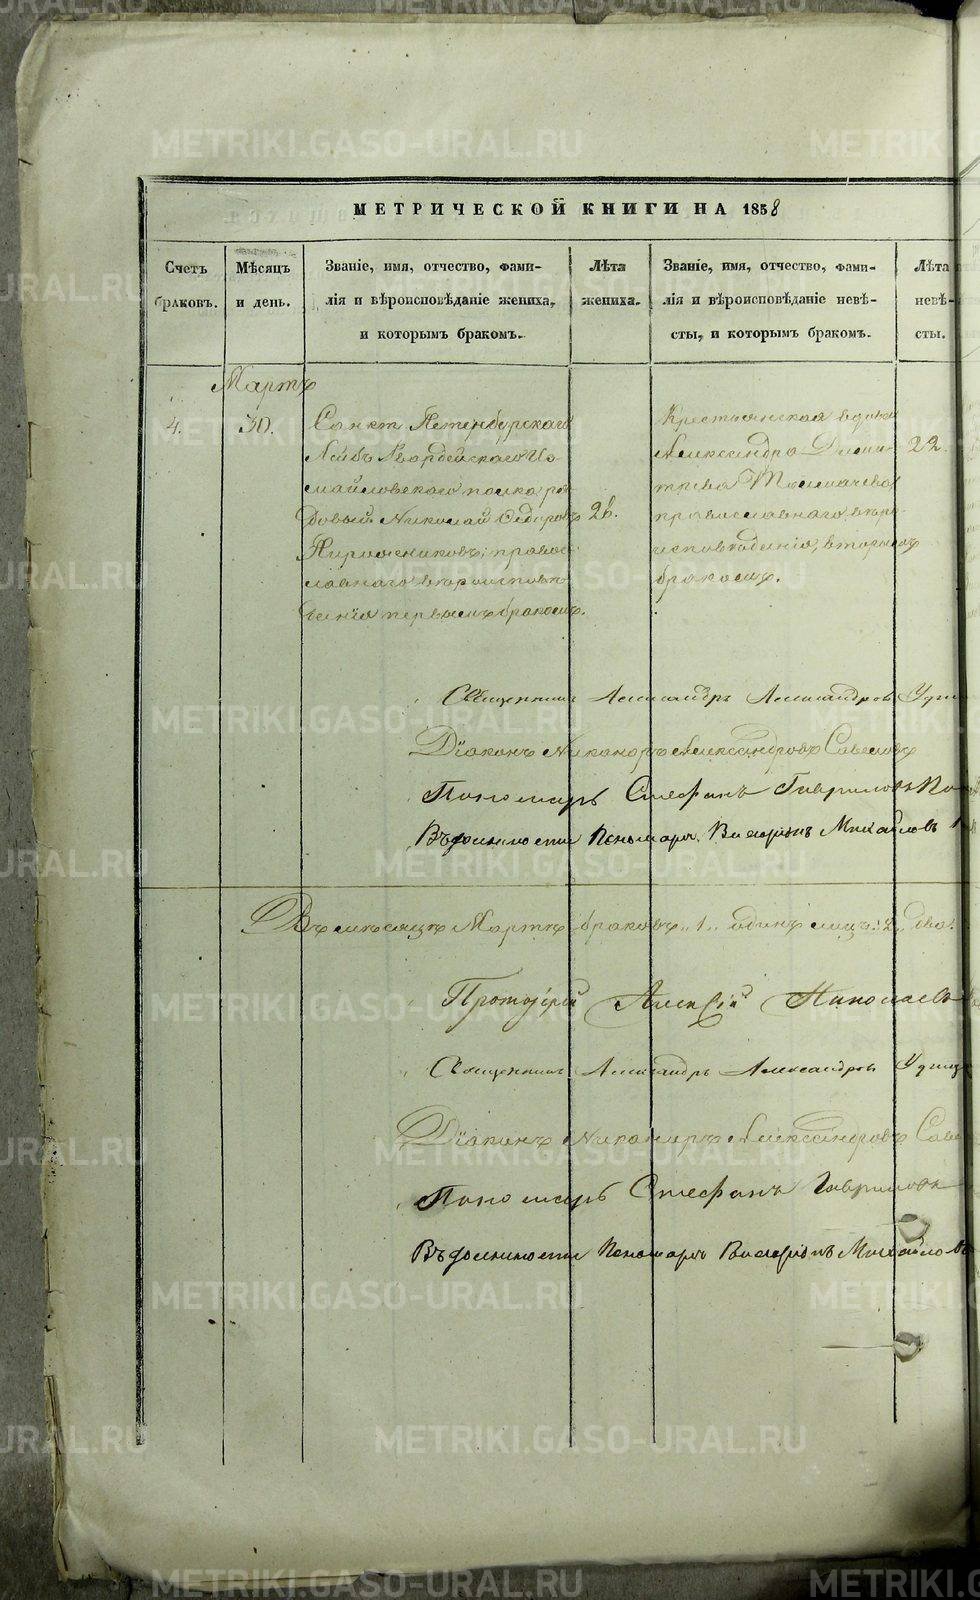 МЕТРИЧЕСКОЙ КНИГИ НА 1858
Счетъ браковъ.
Мѣсяцъ и день.
Званіе, имя, отчество, фами-
лія и вѣроисповѣданіе жениха,
и которымъ бракомъ.
Лѣта
жениха.
Званіе, имя, отчество, фами-
лія и вѣроисповѣданіе невѣ-
сты, и которымъ бракомъ.
Лѣта
невѣ-
сты.
Мартъ
4.
30.
Санкт Петербурскаго
Лейбъ Гвардейскаго Из-
майловскаго полка ря-
довый Николай Ѳедоровъ
православнаго вѣроисповѣ-
денія первымъ бракомъ.
26.
Крестьянская вдова
Александра Дими-
тріева Толмачева
православнаго вѣро-
исповѣденія, вторымъ
бракомъ.
22.
Священникъ Александръ Александровъ
Діаконъ Никаноръ Александровъ
Пономарь Стефанъ Гавриловъ
Въ должности Пономаря Михайловъ
Въ мѣсяцѣ Мартѣ браковъ „1„ одинъ лицъ „2„ два.
Протоіерей Алексій Николаевъ
Священникъ Александръ Александровъ
Діаконъ Никаноръ Александровъ
Пономарь Стефанъ Гавриловъ
Въ должности Пономаря Михайловъ
METRIKI.GASO-URAL.RU